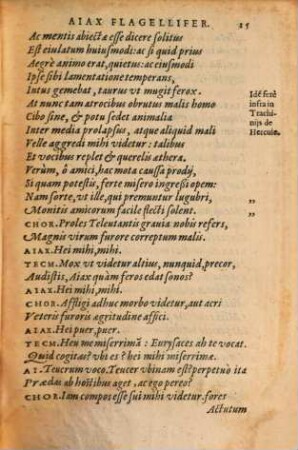 AIAX FLAGELLIFER. 25
Ac mentis abiectæ esse dicere solitus
Est eiulatum huiusmodi: ac si quid prius
Aegrè animo erat, quietus: ac eiusmodi
Ipse sibi lamentatione temperans,
Intus gemebat, taurus vt mugit ferox.
At nunc tam atrocibus obrutus malis homo
Cibo sine, & potu sedet animalia
Inter media prolapsus, atque aliquid mali
Velle aggredi mihi videtur: talibus
Et vocibus replet & querelis æthera.
Verùm, ô amici, hac mota caussa prodij,
Si quam potestis, ferte misero ingressi opem:
Nam sorte, vt ille, qui premuntur lugubri,
Monitis amicorum facile flecti solent.
CHOR. Proles Teleutantis grauia nobis refers,
Magnis virum furore correptum malis.
AIAX. Hei mihi, mihi.
TECM. Mox vt videtur altius, nunquid, precor,
Audistis, Aiax quàm feros edat sonos?
AIAX. Hei mihi, mihi.
CHOR. Affligi adhuc morbo videtur, aut acri
Veteris furoris ægritudine affici.
AIAX. Hei puer, puer.
TECM. Heu me miserrimã: Eurysaces ah te vocat.
Quid cogitas? vbi es? hei mihi miserrimæ.
AI. Teucrum voco. Teucer vbinam est? perpetuò ita
Prædas ab hostibus aget, ac ego pereo?
CHOR. Iam compos esse sui mihi videtur. fores
Actutum
Idẽ ferè
infra in
Trachi-
nijs de
Hercule.
„
„